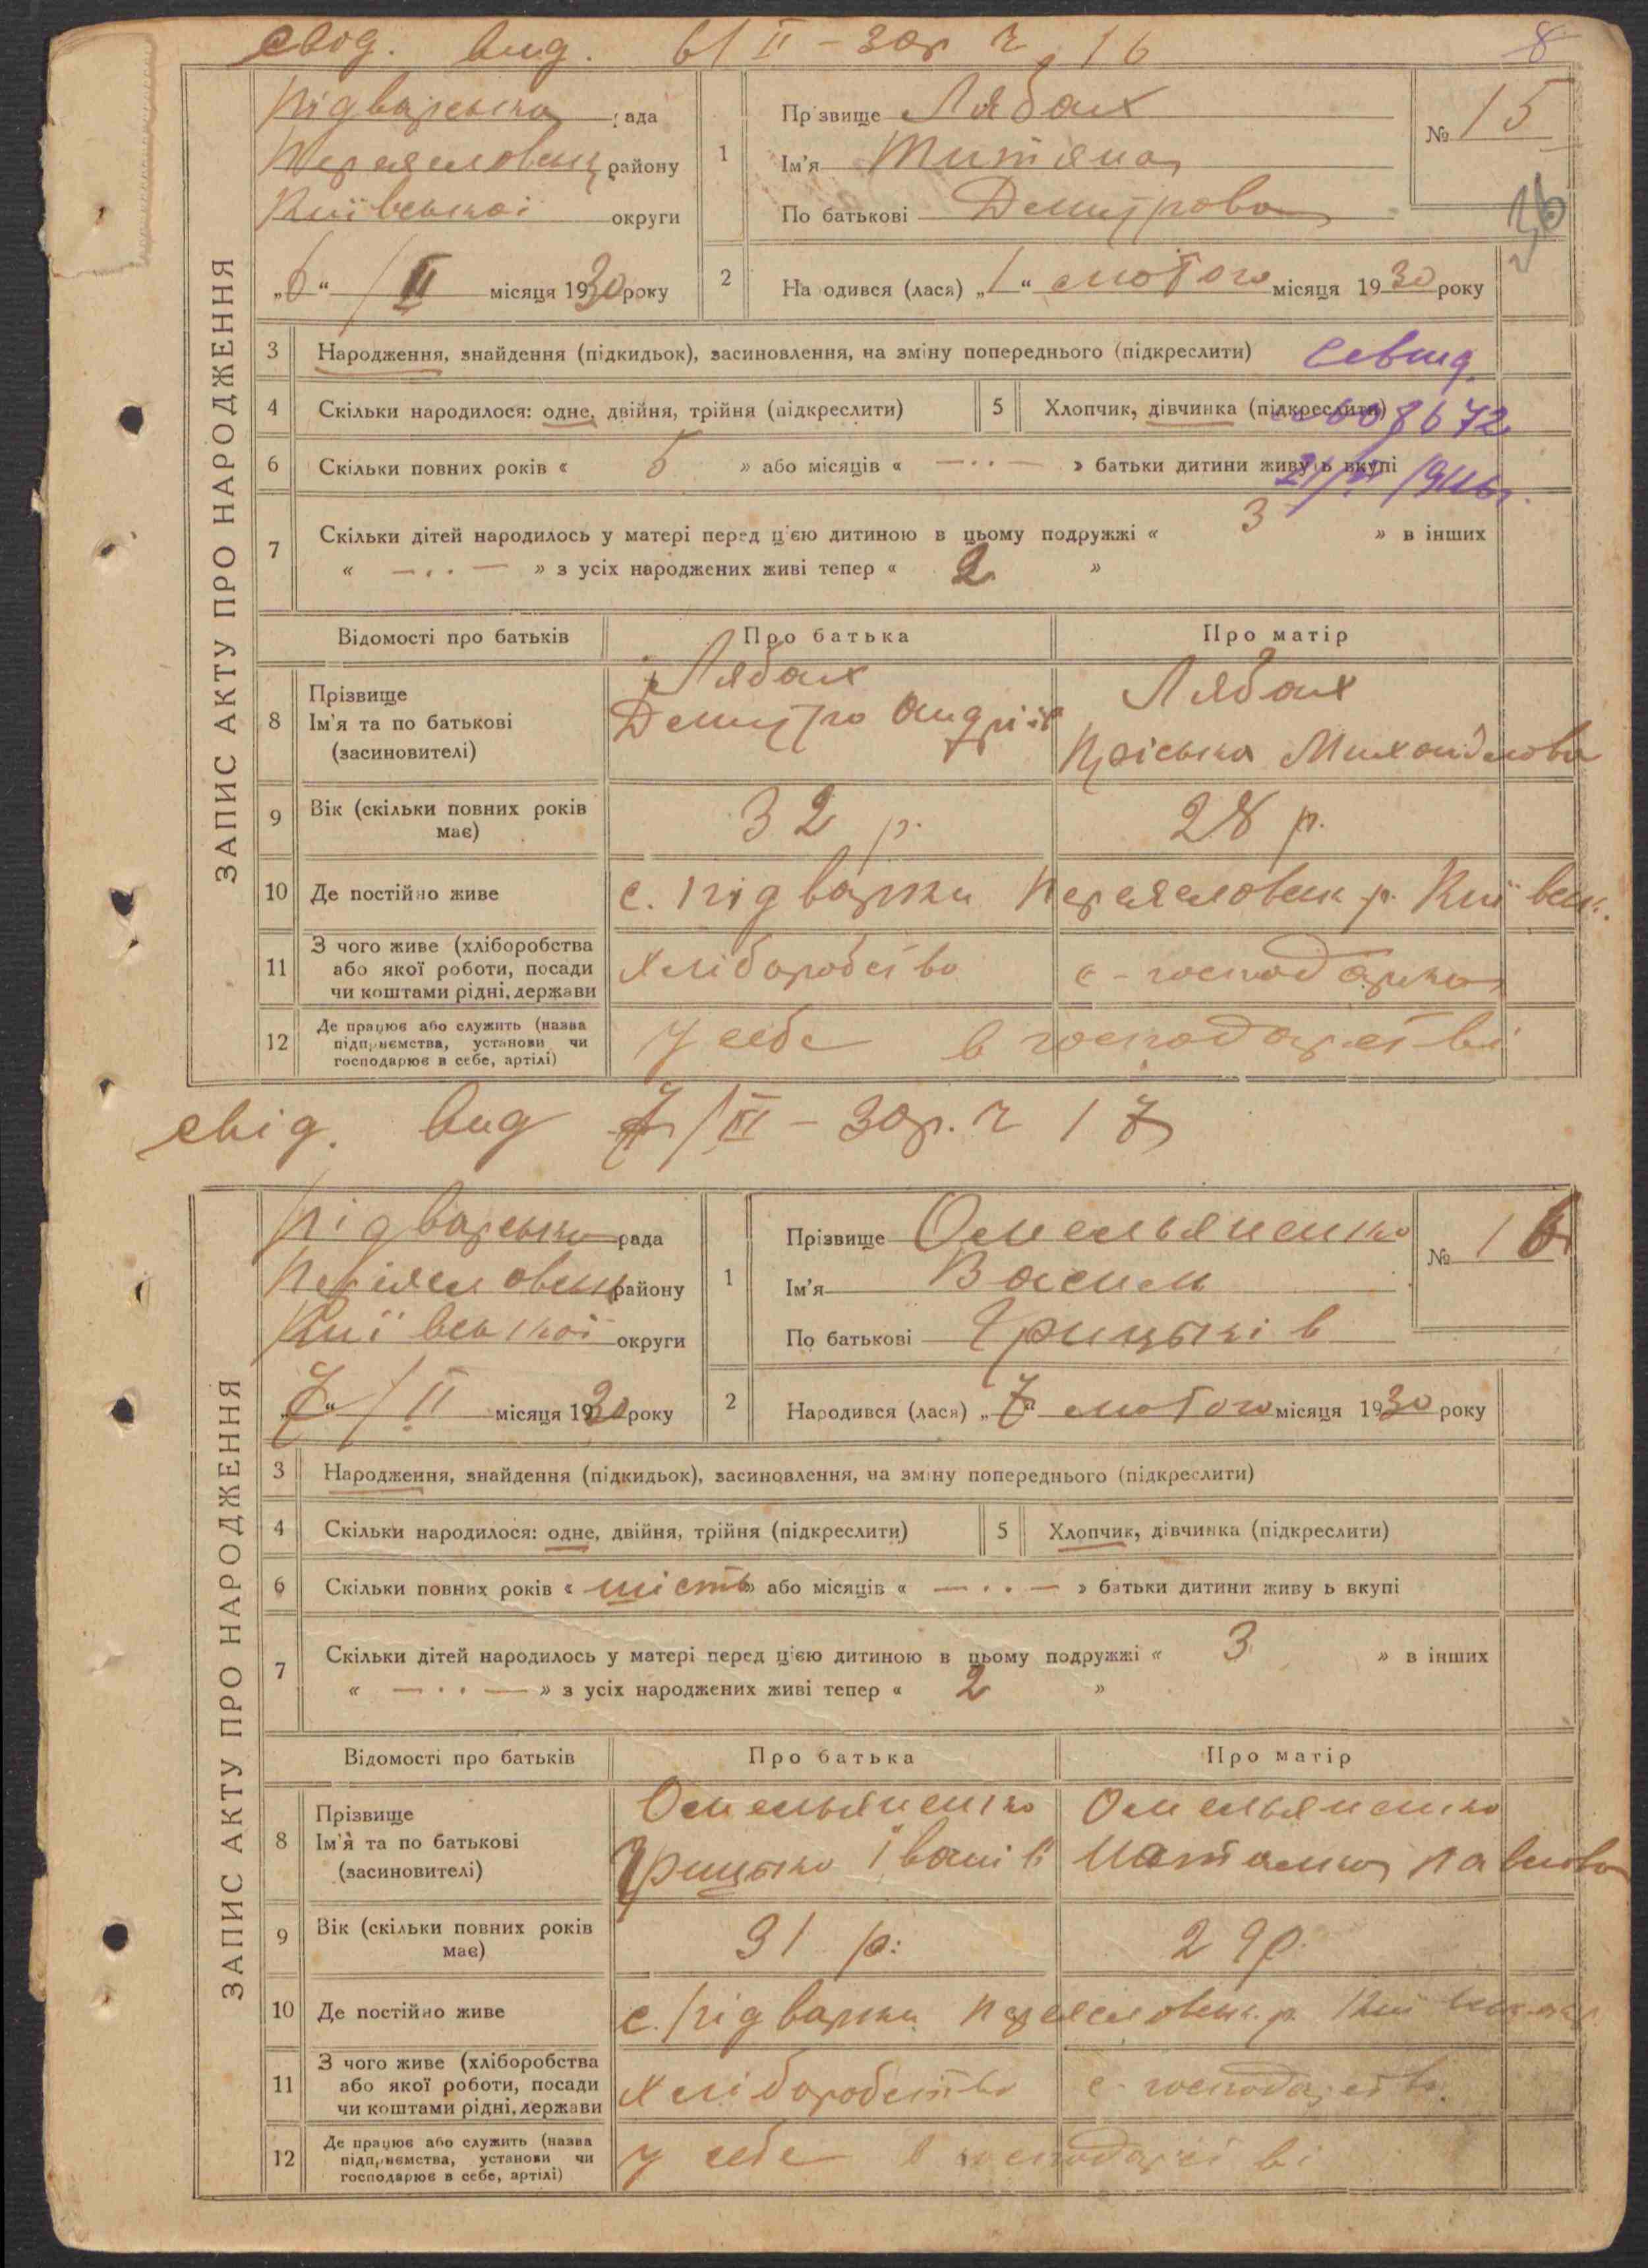 свід. вид. 6/II-30р ч. 16
8
ЗАПИС АКТУ ПРО НАРОДЖЕННЯ
Підварська рада
Переяславськ району
Київської округи
„6“ / II місяця 1930 року
1 Прізвище Лябах
Ім'я Титяна
По батькові Демитрова
№ 15
16
2 Народився (лася) „1“ лютого місяця 1930 року
3 Народження, знайдення (підкидьок), засиновлення, на зміну попереднього (підкреслити)
4 Скільки народилося: одне, двійня, трійня (підкреслити) 5 Хлопчик, дівчинка (підкреслити)
6 Скільки повних років « 5 » або місяців « —··— » батьки дитини живуть вкупі
7 Скільки дітей народилось у матері перед цією дитиною в цьому подружжі « 3 » в інших
« —··— » з усіх народжених живі тепер « 2 »
Відомості про батьків Про батька Про матір
8 Прізвище
Ім'я та по батькові
(засиновителі)
Лябах
Демитро Андріїв
Лябах
Пріська Михайлова
9 Вік (скільки повних років має) 32 р. 28 р.
10 Де постійно живе с. Підварки Переяславськ р. Київськ.
11 З чого живе (хліборобства
або якої роботи, посади
чи коштами рідні, держави
Хліборобство с-господарка
12 Де працює або служить (назва
підприємства, установи чи
господарює в себе, артілі)
У себе в господарстві
свід. вид 7/II-30р. ч 17
ЗАПИС АКТУ ПРО НАРОДЖЕННЯ
Підварська рада
Переяславськ району
Київської округи
„7“ / II місяця 1930 року
1 Прізвище Омельяненко
Ім'я Васил
По батькові Грицьків
№ 16
2 Народився (лася) „7“ лютого місяця 1930 року
3 Народження, знайдення (підкидьок), засиновлення, на зміну попереднього (підкреслити)
4 Скільки народилося: одне, двійня, трійня (підкреслити) 5 Хлопчик, дівчинка (підкреслити)
6 Скільки повних років « шість » або місяців « —··— » батьки дитини живуть вкупі
7 Скільки дітей народилось у матері перед цією дитиною в цьому подружжі « 3 » в інших
« —··— » з усіх народжених живі тепер « 2 »
Відомості про батьків Про батька Про матір
8 Прізвище
Ім'я та по батькові
(засиновителі)
Омельяненко
Грицько Іванів
Омельяненко
Наталка Павлова
9 Вік (скільки повних років має) 31 р. 29 р.
10 Де постійно живе с. Підварки Переяславськ. р.
11 З чого живе (хліборобства
або якої роботи, посади
чи коштами рідні, держави
Хліборобство с-господарство
12 Де працює або служить (назва
підприємства, установи чи
господарює в себе, артілі)
У себе в господарстві